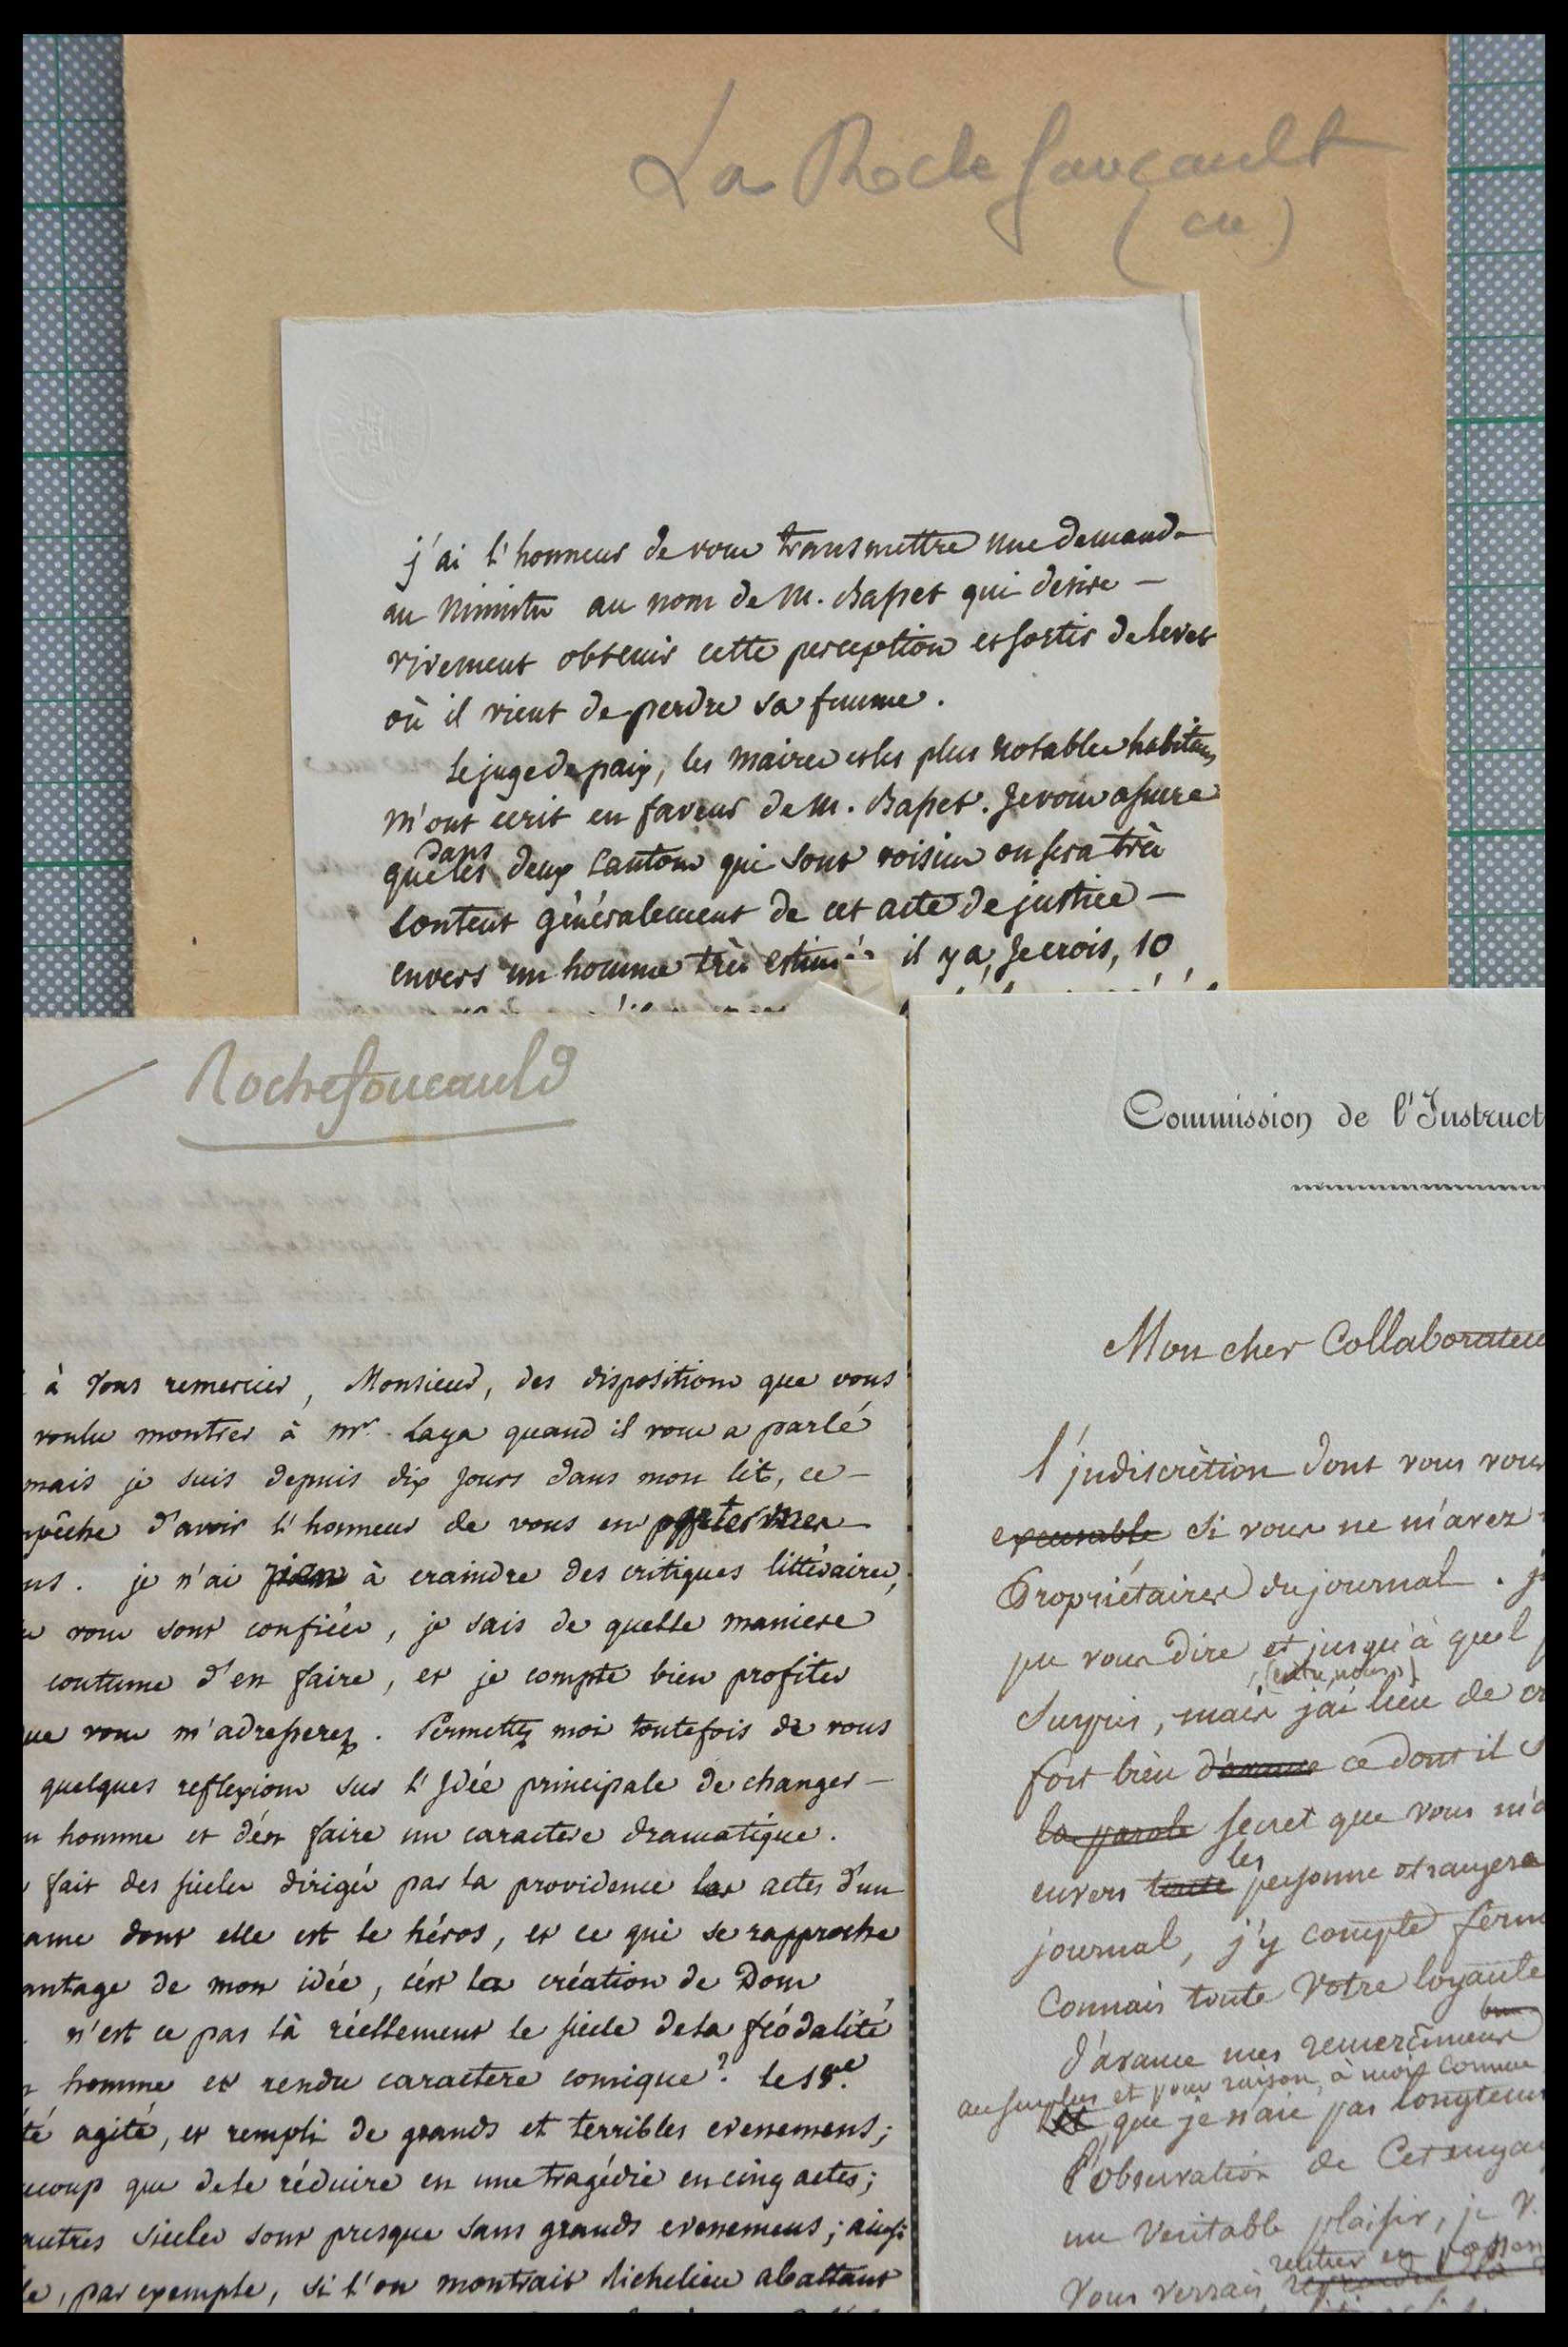 La Rochefoucault
(de)
j'ai l'honneur de vous transmettre une demande
au Ministre au nom de M. Basset qui desire —
vivement obtenir cette perception et sortir de Levet
où il vient de perdre sa femme.
Le juge de paix, les maires et les plus notables habitans
m'ont ecrit en faveur de M. Basset. Je vous assure
dans
que les deux cantons qui sont voisins on sera très
content généralement de cet acte de justice —
envers un homme très estimé il y a, Je crois, 10
Rochefoucauld
à vous remercier, Monsieur, des dispositions que vous
voulu montrer à mr. Laya quand il vous a parlé
mais je suis depuis dix jours dans mon lit, ce —
d'avoir l'honneur de vous en porter mes
je n'ai rien à craindre des critiques littéraires,
vous sont confiées, je sais de quelle maniere
coutume d'en faire, et je compte bien profiter
vous m'adresserez. Permettez moi toutefois de vous
quelques reflexions sur l'Idée principale de changer —
homme et d'en faire un caractere dramatique.
fait des siecles dirigés par la providence les actes d'un
ame dont elle est le héros, et ce qui se rapproche
antage de mon idée, c'est la création de Dom
n'est ce pas là réellement le siecle de la féodalité
homme et rendu caractere comique? le 18e.
té agité, et rempli de grands et terribles evenemens;
ucoup que de le réduire en une tragédie en cinq actes;
autres siecles sont presque sans grands evenemens; ainsi
le, par exemple, si l'on montrait Richelieu abattant
Commission de l'Instruct
Mon cher Collaborateu
l'indiscrètion dont vous vous
excusable si vous ne m'avez
Propriétaires du journal. j
pu vous dire et jusqu'à quel
(entre nous)
Surpris, mais j'ai lieu de cr
fort bien d'avance ce dont il s
la parole secret que vous m'a
les
envers toute personne etrangere
journal, j'y compte ferm
Connais toute Votre loyauté
d'avance mes remerciemens
au surplus et pour raison, à moi connue
et que je n'aie pas longtems
l'observation de Cet engag
un Veritable plaisir, je V.
rentrer en
Vous verrais reprendre sa